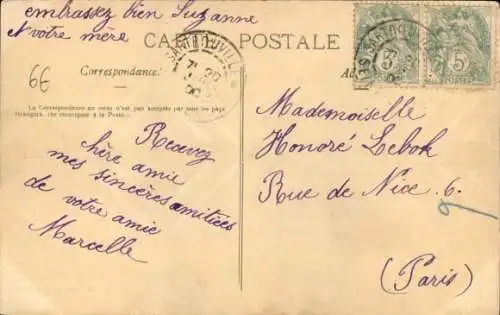 embrassez bien Suzanne
& votre mère
CARTE POSTALE
66
Correspondance.
La Correspondance au recto n'est pas acceptée par tous les pays
étrangers. (Se renseigner à la Poste.)
Recevez
chère amie
mes sincères amitiées
de votre amie
Marcelle
5
5
POSTES
Mademoiselle
Honoré Lebok
Rue de Nice 6.
(Paris)